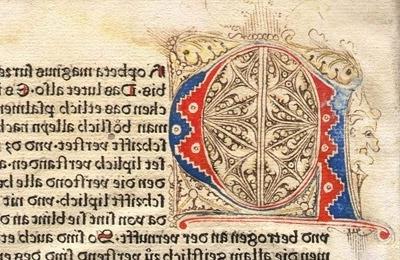 Ropheta magnus surre
bis. Das lutet also. Es i
chen das etlich psalmen
man bößlich allein nach
schrifft verstee. vnd dz
set liplich verstanden. a
den die verstond alle be
schrifft liplich. vnd nit
da von sint sie blint an d
vnd betrogen an der vernufft. So sind auch et
men die man allein geistlich zů versteen